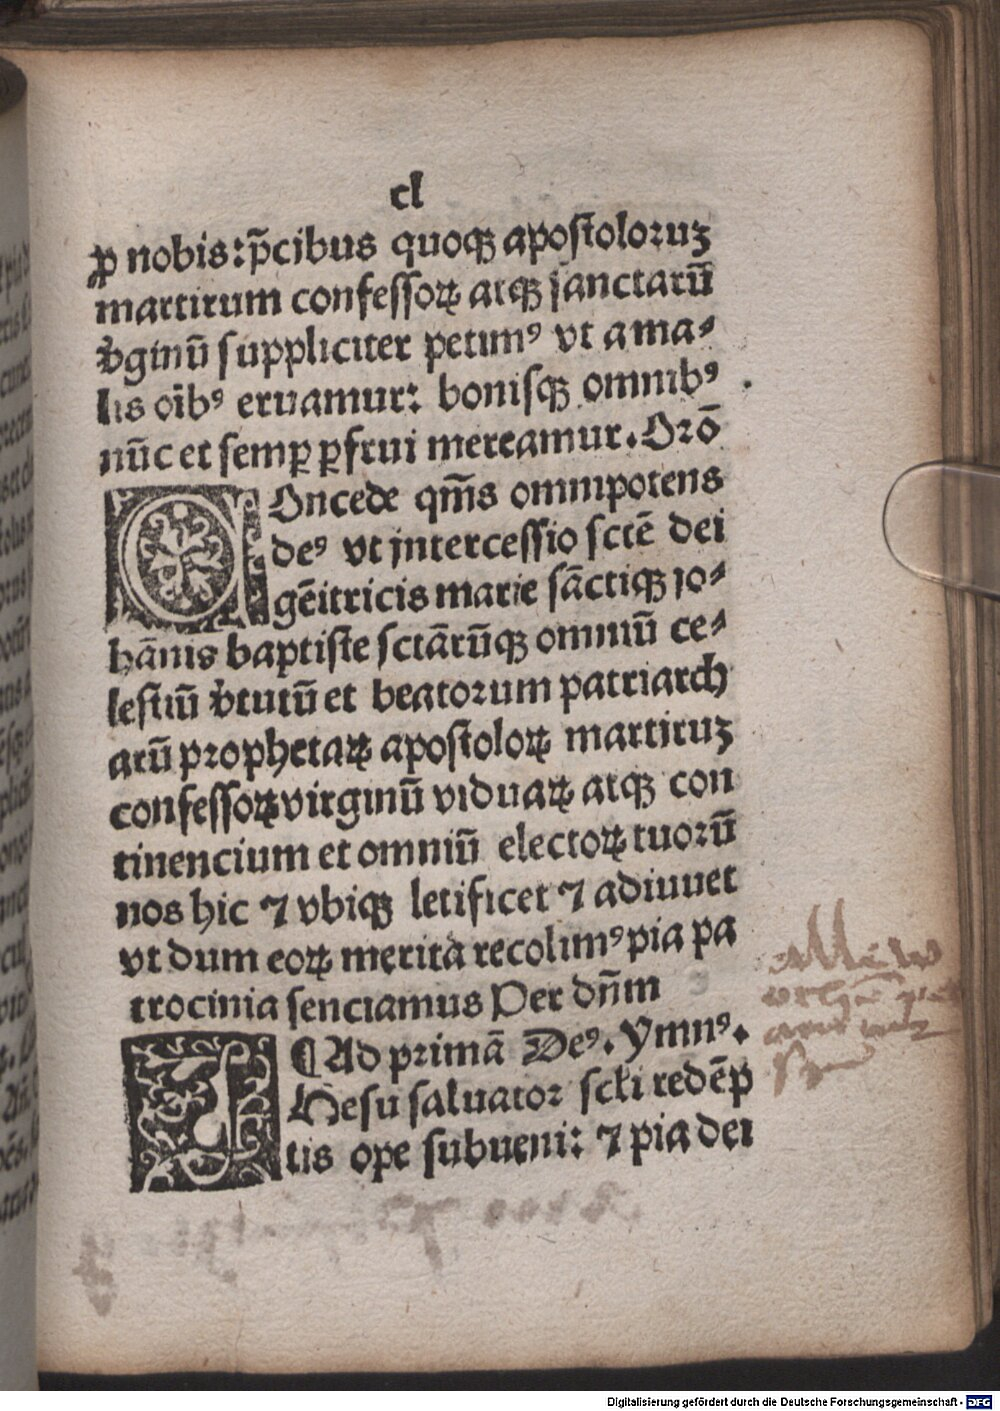 cl
ꝓ nobis: p̄cibus quoqꝫ apostoloꝛuꝫ
martirum confessoꝝ atqꝫ sanctarū
v̄ginū suppliciter petimꝰ vt a ma⸗
lis oībꝰ eruamur: bonisqꝫ omnibꝰ
nūc et semꝑ ꝑfrui mereamur. Oꝛō
COncede qm̄s omnipotens
deꝰ vt intercessio sctē dei
gēitricis marie sāctiqꝫ jo⸗
hānis baptiste sctārūqꝫ omniū ce⸗
lestiū v̄tutū et beatoꝛum patriarch
arū prophetaꝝ apostoloꝝ martiruꝫ
confessoꝝ virginū viduaꝝ atqꝫ con
tinencium et omniū electoꝝ tuorū
nos hic ⁊ vbiqꝫ letificet ⁊ adiuuet
vt dum eoꝝ merita recolimꝰ pia pa
trocinia senciamus Per dn̄m
¶ Ad primā Deꝰ. Ymnꝰ.
JHesu saluatoꝛ scl̄i redēp
tis ope subueni: ⁊ pia dei
Digitalisierung gefördert durch die Deutsche Forschungsgemeinschaft - DFG